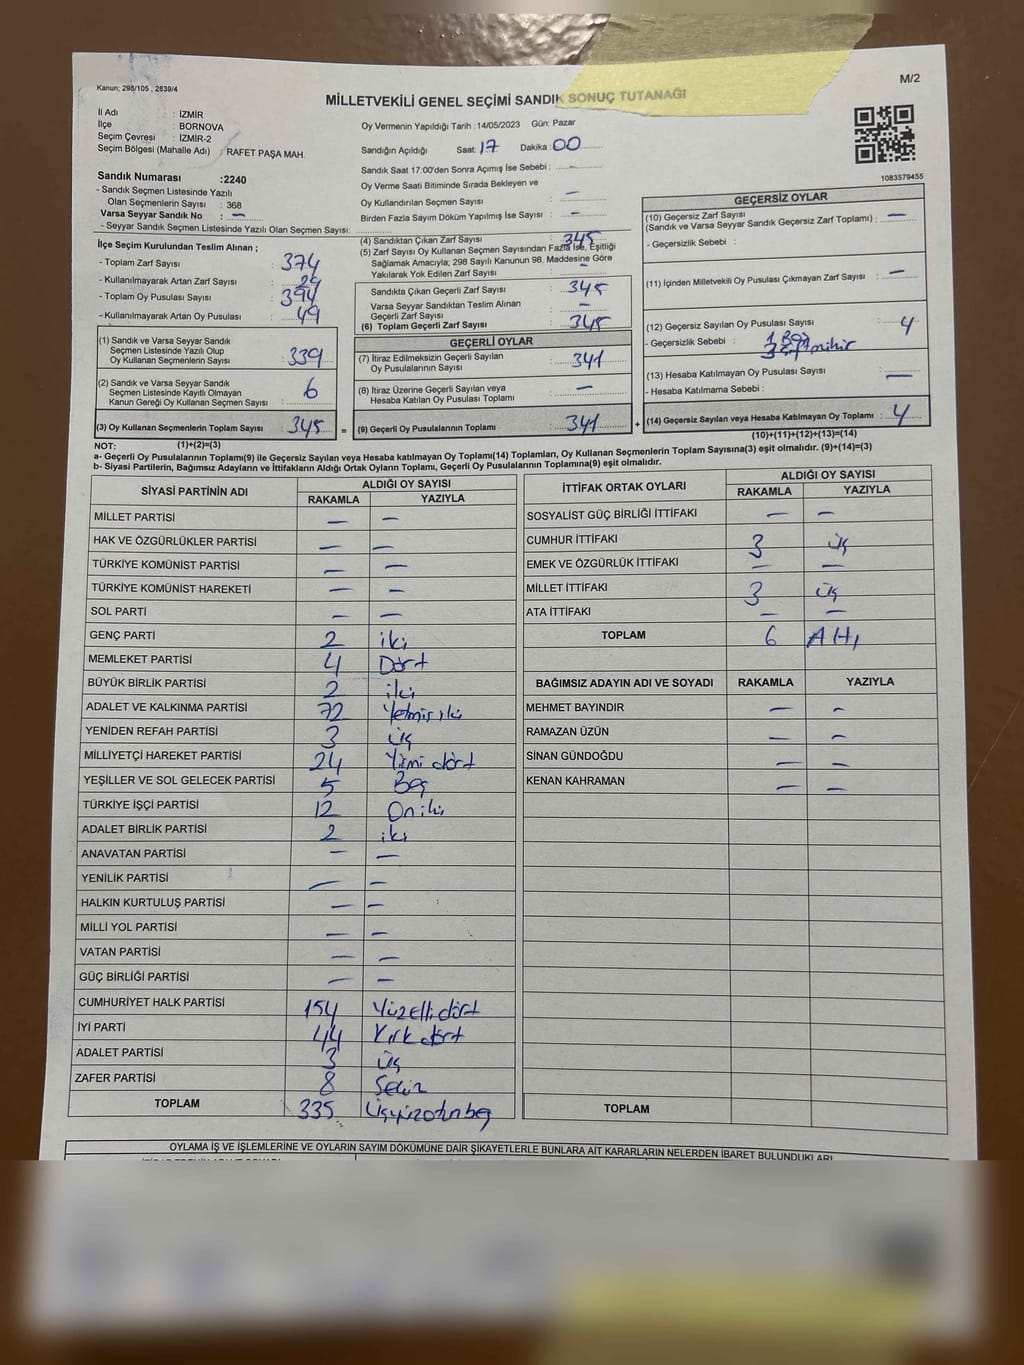 Kanun; 298/105 , 2839/4
M/2
MİLLETVEKİLİ GENEL SEÇİMİ SANDIK SONUÇ TUTANAĞI
İl Adı : İZMİR
İlçe : BORNOVA
Seçim Çevresi : İZMİR-2
Seçim Bölgesi (Mahalle Adı) : RAFET PAŞA MAH.
Oy Vermenin Yapıldığı Tarih :14/05/2023 Gün: Pazar
Sandığın Açıldığı Saat: 17 Dakika: 00
Sandık Saat 17:00'den Sonra Açımış İse Sebebi : —
Oy Verme Saati Bitiminde Sırada Bekleyen ve
Oy Kullandırılan Seçmen Sayısı : —
Birden Fazla Sayım Döküm Yapılmış İse Sayısı : —
1083579455
Sandık Numarası :2240
- Sandık Seçmen Listesinde Yazılı
Olan Seçmenlerin Sayısı : 368
Varsa Seyyar Sandık No : —
- Seyyar Sandık Seçmen Listesinde Yazılı Olan Seçmen Sayısı:
İlçe Seçim Kurulundan Teslim Alınan ;
- Toplam Zarf Sayısı : 374
- Kullanılmayarak Artan Zarf Sayısı : 29
- Toplam Oy Pusulası Sayısı : 394
- Kullanılmayarak Artan Oy Pusulası : 49
(1) Sandık ve Varsa Seyyar Sandık
Seçmen Listesinde Yazılı Olup
Oy Kullanan Seçmenlerin Sayısı : 339
(2) Sandık ve Varsa Seyyar Sandık
Seçmen Listesinde Kayıtlı Olmayan
Kanun Gereği Oy Kullanan Seçmen Sayısı : 6
(3) Oy Kullanan Seçmenlerin Toplam Sayısı : 345 =
(1)+(2)=(3)
(4) Sandıktan Çıkan Zarf Sayısı : 345
(5) Zarf Sayısı Oy Kullanan Seçmen Sayısından Fazla İse, Eşitliği
Sağlamak Amacıyla; 298 Sayılı Kanunun 98. Maddesine Göre
Yakılarak Yok Edilen Zarf Sayısı : —
Sandıkta Çıkan Geçerli Zarf Sayısı : 345
Varsa Seyyar Sandıktan Teslim Alınan
Geçerli Zarf Sayısı : —
(6) Toplam Geçerli Zarf Sayısı : 345
GEÇERLİ OYLAR
(7) İtiraz Edilmeksizin Geçerli Sayılan
Oy Pusulalarının Sayısı : 341
(8) İtiraz Üzerine Geçerli Sayılan veya
Hesaba Katılan Oy Pusulası Toplamı : —
(9) Geçerli Oy Pusulalarının Toplamı : 341 +
GEÇERSİZ OYLAR
(10) Geçersiz Zarf Sayısı
(Sandık ve Varsa Seyyar Sandık Geçersiz Zarf Toplamı) : —
- Geçersizlik Sebebi :
(11) İçinden Milletvekili Oy Pusulası Çıkmayan Zarf Sayısı : —
(12) Geçersiz Sayılan Oy Pusulası Sayısı : 4
- Geçersizlik Sebebi : 1 Boş
(13) Hesaba Katılmayan Oy Pusulası Sayısı : —
- Hesaba Katılmama Sebebi :
(14) Geçersiz Sayılan veya Hesaba Katılmayan Oy Toplamı : 4
(10)+(11)+(12)+(13)=(14)
NOT:
a- Geçerli Oy Pusulalarının Toplamı(9) ile Geçersiz Sayılan veya Hesaba katılmayan Oy Toplamı(14) Toplamları, Oy Kullanan Seçmenlerin Toplam Sayısına(3) eşit olmalıdır. (9)+(14)=(3)
b- Siyasi Partilerin, Bağımsız Adayların ve İttifakların Aldığı Ortak Oyların Toplamı, Geçerli Oy Pusulalarının Toplamına(9) eşit olmalıdır.
SİYASİ PARTİNİN ADI ALDIĞI OY SAYISI
RAKAMLA YAZIYLA
MİLLET PARTİSİ — —
HAK VE ÖZGÜRLÜKLER PARTİSİ — —
TÜRKİYE KOMÜNİST PARTİSİ — —
TÜRKİYE KOMÜNİST HAREKETİ — —
SOL PARTİ — —
GENÇ PARTİ 2 iki
MEMLEKET PARTİSİ 4 Dört
BÜYÜK BİRLİK PARTİSİ 2 iki
ADALET VE KALKINMA PARTİSİ 72 Yetmiş iki
YENİDEN REFAH PARTİSİ 3 üç
MİLLİYETÇİ HAREKET PARTİSİ 24 Yirmi dört
YEŞİLLER VE SOL GELECEK PARTİSİ 5 Beş
TÜRKİYE İŞÇİ PARTİSİ 12 On iki
ADALET BİRLİK PARTİSİ 2 iki
ANAVATAN PARTİSİ — —
YENİLİK PARTİSİ — —
HALKIN KURTULUŞ PARTİSİ — —
MİLLİ YOL PARTİSİ — —
VATAN PARTİSİ — —
GÜÇ BİRLİĞİ PARTİSİ — —
CUMHURİYET HALK PARTİSİ 154 Yüzelli dört
İYİ PARTİ 44 Kırk dört
ADALET PARTİSİ 3 üç
ZAFER PARTİSİ 8 Sekiz
TOPLAM 335 Üçyüzotuzbeş
İTTİFAK ORTAK OYLARI ALDIĞI OY SAYISI
RAKAMLA YAZIYLA
SOSYALİST GÜÇ BİRLİĞİ İTTİFAKI — —
CUMHUR İTTİFAKI 3 üç
EMEK VE ÖZGÜRLÜK İTTİFAKI — —
MİLLET İTTİFAKI 3 üç
ATA İTTİFAKI — —
TOPLAM 6 Altı
BAĞIMSIZ ADAYIN ADI VE SOYADI RAKAMLA YAZIYLA
MEHMET BAYINDIR — —
RAMAZAN ÜZÜN — —
SİNAN GÜNDOĞDU — —
KENAN KAHRAMAN — —
TOPLAM
OYLAMA İŞ VE İŞLEMLERİNE VE OYLARIN SAYIM DÖKÜMÜNE DAİR ŞİKAYETLERLE BUNLARA AİT KARARLARIN NELERDEN İBARET BULUNDUKLARI